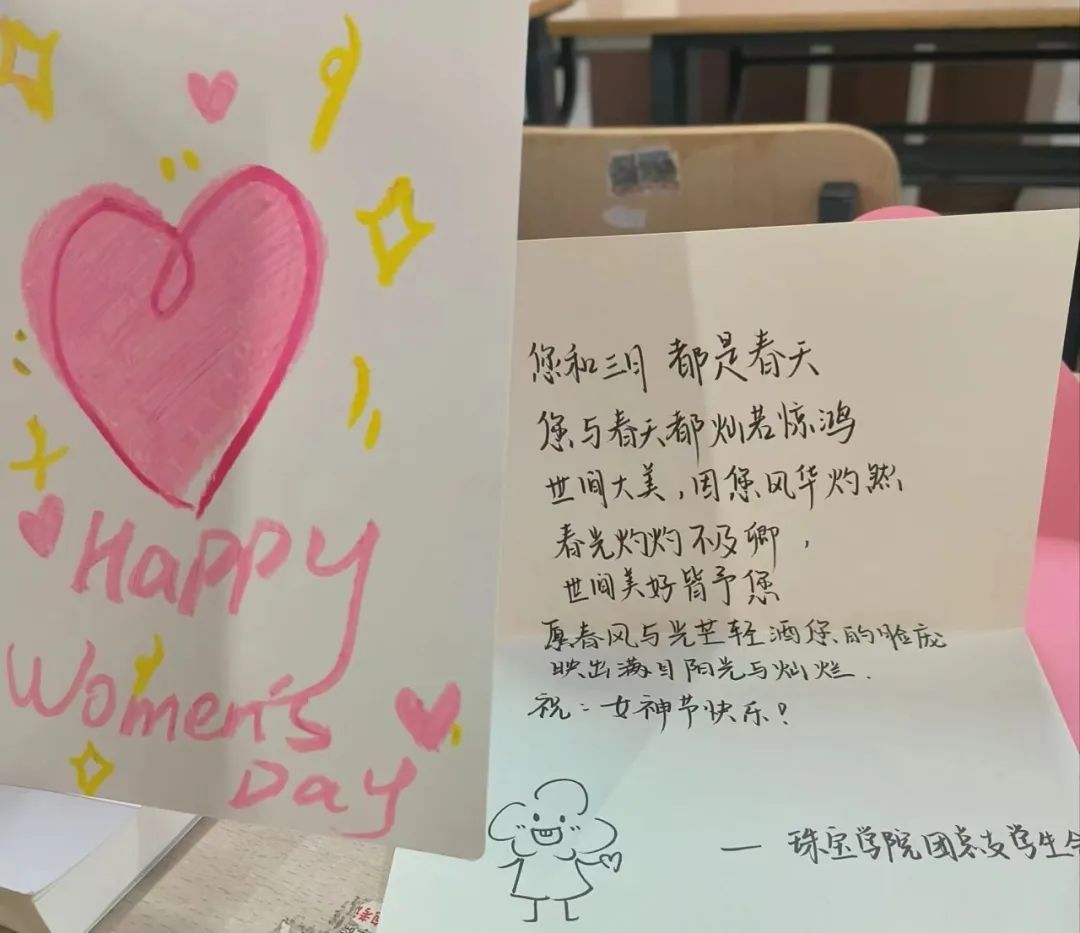 Happy
Women's
Day
您和三月 都是春天
您与春天都灿若惊鸿
世间大美,因您风华灼然
春光灼灼不及卿,
世间美好皆予您
愿春风与光芒轻洒您的脸庞
映出满目阳光与灿烂.
祝:女神节快乐!
— 珠宝学院团总支学生会